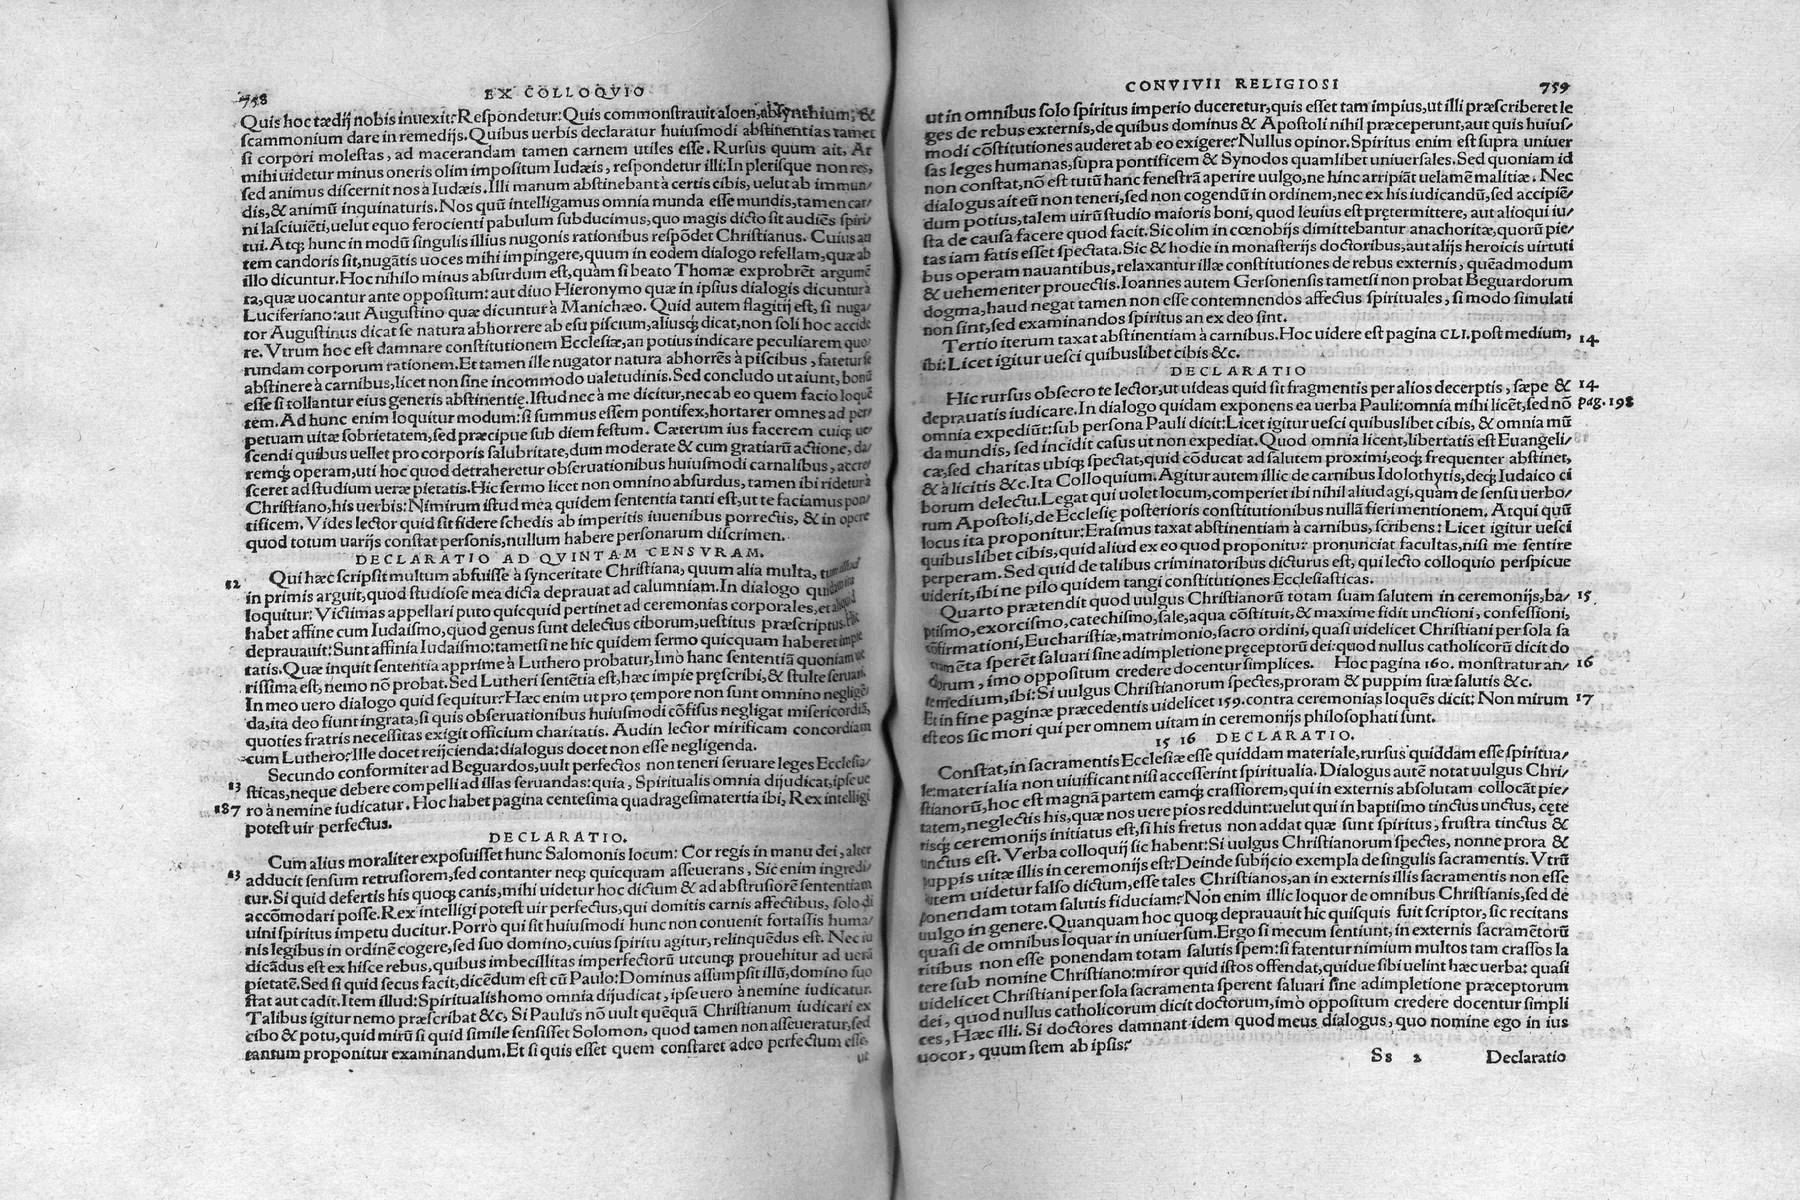 758
EX COLLOQVIO
Quis hoc tædij nobis inuexit? Respondetur: Quis commonstrauit aloen, absynthium, &
scammonium dare in remedijs. Quibus uerbis declaratur huiusmodi abstinentias tamet
si corpori molestas, ad macerandam tamen carnem utiles esse. Rursus quum ait, At
mihi uidetur minus oneris olim impositum Iudæis, respondetur illi: In plerisque non res,
sed animus discernit nos à Iudæis. Illi manum abstinebant à certis cibis, uelut ab immun/
dis, & animũ inquinaturis. Nos quũ intelligamus omnia munda esse mundis, tamen car/
ni lasciuiẽti, uelut equo ferocienti pabulum subducimus, quo magis dicto sit audiẽs spiri/
tui. Atq; hunc in modũ singulis illius nugonis rationibus respõdet Christianus. Cuius au
tem candoris sit, nugãtis uoces mihi impingere, quum in eodem dialogo refellam, quæ ab
illo dicuntur. Hoc nihilo minus absurdum est, quàm si beato Thomæ exprobrẽt argumẽ
ta, quæ uocantur ante oppositum: aut diuo Hieronymo quæ in ipsius dialogis dicuntur à
Luciferiano: aut Augustino quæ dicuntur à Manichæo. Quid autem flagitij est, si nuga/
tor Augustinus dicat se natura abhorrere ab esu piscium, aliusq; dicat, non soli hoc accide
re. Vtrum hoc est damnare constitutionem Ecclesiæ, an potius indicare peculiarem quo
rundam corporum rationem. Et tamen ille nugator natura abhorrẽs à piscibus, fatetur se
abstinere à carnibus, licet non sine incommodo ualetudinis. Sed concludo ut aiunt, bonũ
esse si tollantur eius generis abstinentiæ. Istud nec à me dicitur, nec ab eo quem facio loquẽ
tem. Ad hunc enim loquitur modum: si summus essem pontifex, hortarer omnes ad per/
petuam uitæ sobrietatem, sed præcipue sub diem festum. Cæterum ius facerem cuiq; ue/
scendi quibus uellet pro corporis salubritate, dum moderate & cum gratiarũ actione, da/
remq; operam, uti hoc quod detraheretur obseruationibus huiusmodi carnalibus, accre/
sceret ad studium ueræ pietatis. Hic sermo licet non omnino absurdus, tamen ibi ridetur à
Christiano, his uerbis: Nimirum istud mea quidem sententia tanti est, ut te faciamus pon/
tificem. Vides lector quid sit fidere schedis ab imperitis iuuenibus porrectis, & in opere
quod totum uarijs constat personis, nullum habere personarum discrimen.
DECLARATIO AD QVINTAM CENSVRAM.
12 Qui hæc scripsit multum abfuisse à synceritate Christiana, quum alia multa, tum illud
in primis arguit, quod studiose mea dicta deprauat ad calumniam. In dialogo quidam ita
loquitur: Victimas appellari puto quicquid pertinet ad ceremonias corporales, et aliquid
habet affine cum Iudaismo, quod genus sunt delectus ciborum, uestitus præscriptus. Hic
deprauauit: Sunt affinia Iudaismo: tametsi ne hic quidem sermo quicquam haberet impie
tatis. Quæ inquit sententia apprime à Luthero probatur, Imò hanc sententiã quoniam ue
rissima est, nemo nõ probat. Sed Lutheri sentẽtia est, hæc impie pręscribi, & stulte seruari.
In meo uero dialogo quid sequitur? Hæc enim ut pro tempore non sunt omnino negligẽ/
da, ita deo fiunt ingrata, si quis obseruationibus huiusmodi cõfisus negligat misericordiã,
quoties fratris necessitas exigit officium charitatis. Audin lector mirificam concordiam
cum Luthero? Ille docet reijcienda: dialogus docet non esse negligenda.
Secundo conformiter ad Beguardos, uult perfectos non teneri seruare leges Ecclesia/
13 sticas, neque debere compelli ad illas seruandas: quia, Spiritualis omnia dijudicat, ipse ue
187 ro à nemine iudicatur. Hoc habet pagina centesima quadragesimatertia ibi, Rex intelligi
potest uir perfectus.
DECLARATIO.
Cum alius moraliter exposuisset hunc Salomonis locum: Cor regis in manu dei, alter
13 adducit sensum retrusiorem, sed contanter neq; quicquam asseuerans, Sic enim ingredi/
tur. Si quid defertis his quoq; canis, mihi uidetur hoc dictum & ad abstrusiorẽ sententiam
accõmodari posse. Rex intelligi potest uir perfectus, qui domitis carnis affectibus, solo di
uini spiritus impetu ducitur. Porrò qui sit huiusmodi hunc non conuenit fortassis huma/
nis legibus in ordinẽ cogere, sed suo domino, cuius spiritu agitur, relinquẽdus est. Nec iu
dicãdus est ex hisce rebus, quibus imbecillitas imperfectorũ utcunq; prouehitur ad uerã
pietatẽ. Sed si quid secus facit, dicẽdum est cũ Paulo: Dominus assumpsit illũ, domino suo
stat aut cadit. Item illud: Spiritualis homo omnia dijudicat, ipse uero à nemine iudicatur.
Talibus igitur nemo præscribat &c, Si Paulus nõ uult quẽquã Christianum iudicari ex
cibo & potu, quid mirũ si quid simile sensisset Solomon, quod tamen non asseueratur, sed
tantum proponitur examinandum. Et si quis esset quem constaret adeo perfectum esse,
ut
CONVIVII RELIGIOSI
759
ut in omnibus solo spiritus imperio duceretur, quis esset tam impius, ut illi præscriberet le
ges de rebus externis, de quibus dominus & Apostoli nihil præceperunt, aut quis huius/
modi cõstitutiones auderet ab eo exigere? Nullus opinor. Spiritus enim est supra uniuer
sas leges humanas, supra pontificem & Synodos quamlibet uniuersales. Sed quoniam id
non constat, nõ est tutũ hanc fenestrã aperire uulgo, ne hinc arripiãt uelamẽ malitiæ. Nec
dialogus ait eũ non teneri, sed non cogendũ in ordinem, nec ex his iudicandũ, sed accipiẽ/
dum potius, talem uirũ studio maioris boni, quod leuius est prętermittere, aut alioqui iu/
sta de causa facere quod facit. Sic olim in cœnobijs dimittebantur anachoritæ, quorũ pie/
tas iam satis esset spectata. Sic & hodie in monasterijs doctoribus, aut alijs heroicis uirtuti
bus operam nauantibus, relaxantur illæ constitutiones de rebus externis, quẽadmodum
& uehementer prouectis. Ioannes autem Gersonensis tametsi non probat Beguardorum
dogma, haud negat tamen non esse contemnendos affectus spirituales, si modo simulati
non sint, sed examinandos spiritus an ex deo sint.
Tertio iterum taxat abstinentiam à carnibus. Hoc uidere est pagina CLI. post medium, 14
ibi: Licet igitur uesci quibuslibet cibis &c.
DECLARATIO
Hic rursus obsecro te lector, ut uideas quid sit fragmentis per alios decerptis, sæpe & 14
deprauatis iudicare. In dialogo quidam exponens ea uerba Pauli: omnia mihi licẽt, sed nõ pag. 198
omnia expediũt: sub persona Pauli dicit: Licet igitur uesci quibuslibet cibis, & omnia mũ
da mundis, sed incidit casus ut non expediat. Quod omnia licent, libertatis est Euangeli/
cæ, sed charitas ubiq; spectat, quid cõducat ad salutem proximi, eoq; frequenter abstinet,
& à licitis &c. Ita Colloquium. Agitur autem illic de carnibus Idolothytis, deq; Iudaico ci
borum delectu. Legat qui uolet locum, comperiet ibi nihil aliud agi, quàm de sensu uerbo/
rum Apostoli, de Ecclesię posterioris constitutionibus nullã fieri mentionem. Atqui quũ
locus ita proponitur: Erasmus taxat abstinentiam à carnibus, scribens: Licet igitur uesci
quibuslibet cibis, quid aliud ex eo quod proponitur pronunciat facultas, nisi me sentire
perperam. Sed quid de talibus criminatoribus dicturus est, qui lecto colloquio perspicue
uiderit, ibi ne pilo quidem tangi constitutiones Ecclesiasticas.
Quarto prætendit quod uulgus Christianorũ totam suam salutem in ceremonijs, ba/ 15
ptismo, exorcismo, catechismo, sale, aqua cõstituit, & maxime fidit unctioni, confessioni,
cõfirmationi, Eucharistiæ, matrimonio, sacro ordini, quasi uidelicet Christiani per sola sa
cramẽta sperẽt saluari sine adimpletione pręceptorũ dei: quod nullus catholicorũ dicit do
ctorum, imo oppositum credere docentur simplices. Hoc pagina 160. monstratur an/ 16
te medium, ibi: Si uulgus Christianorum spectes, proram & puppim suæ salutis &c.
Et in fine paginæ præcedentis uidelicet 159. contra ceremonias loquẽs dicit: Non mirum 17
est eos sic mori qui per omnem uitam in ceremonijs philosophati sunt.
15 16 DECLARATIO.
Constat, in sacramentis Ecclesiæ esse quiddam materiale, rursus quiddam esse spiritua/
le: materialia non uiuificant nisi accesserint spiritualia. Dialogus autẽ notat uulgus Chri/
stianorũ, hoc est magnã partem eamq; crassiorem, qui in externis absolutam collocãt pie/
tatem, neglectis his, quæ nos uere pios reddunt: uelut qui in baptismo tinctus unctus, cęte
risq; ceremonijs initiatus est, si his fretus non addat quæ sunt spiritus, frustra tinctus &
unctus est. Verba colloquij sic habent: Si uulgus Christianorum spectes, nonne prora &
puppis uitæ illis in ceremonijs est? Deinde subijcio exempla de singulis sacramentis. Vtrũ
autem uidetur falso dictum, esse tales Christianos, an in externis illis sacramentis non esse
ponendam totam salutis fiduciam? Non enim illic loquor de omnibus Christianis, sed de
uulgo in genere. Quanquam hoc quoq; deprauauit hic quisquis fuit scriptor, sic recitans
quasi de omnibus loquar in uniuersum. Ergo si mecum sentiunt, in externis sacramẽtorũ
ritibus non esse ponendam totam salutis spem: si fatentur nimium multos tam crassos la
tere sub nomine Christiano: miror quid istos offendat, quidue sibi uelint hæc uerba: quasi
uidelicet Christiani per sola sacramenta sperent saluari sine adimpletione præceptorum
dei, quod nullus catholicorum dicit doctorum, imò oppositum credere docentur simpli
ces, Hæc illi. Si doctores damnant idem quod meus dialogus, quo nomine ego in ius
uocor, quum stem ab ipsis?
Ss 2 Declaratio